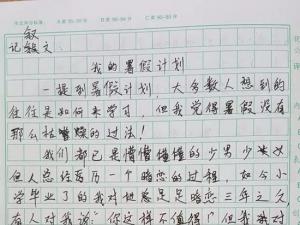 叙
记叙文
我的暑假计划
一提到暑假计划，大多数人想到的
往往是如何来学习，但我觉得暑假没有
那么枯燥的过法！
我们都已是懵懵懂懂的少男少女
但人总经历一个暗恋的过程，如今小
学毕业了的我对她总是暗恋三年之久，
有人对我说"你这样不值得!"但我对